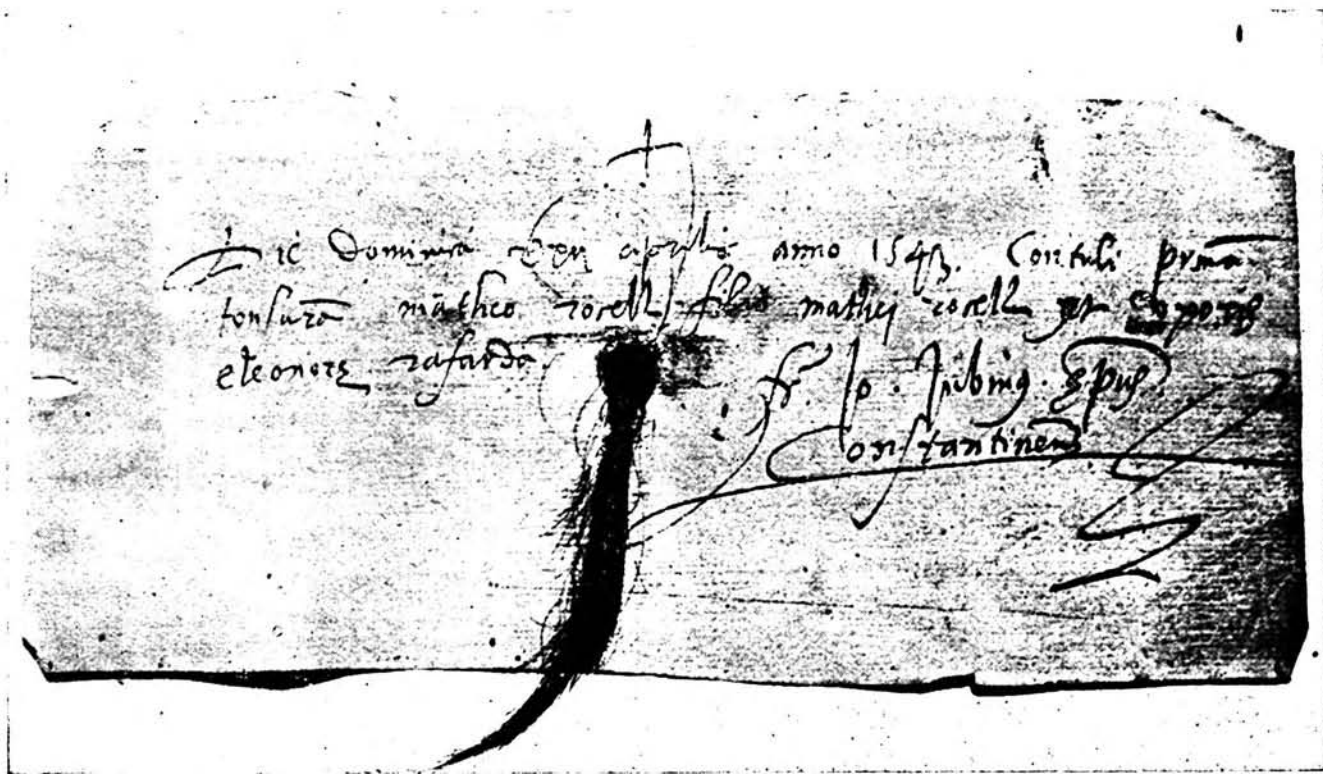 Die Dominica aprilis anno 154 Contuli prima
tonsurā matheo rocell filio mathei rocell et
eleonore rafarda
fr. Jo. Jubinus. Epus
Constantinen